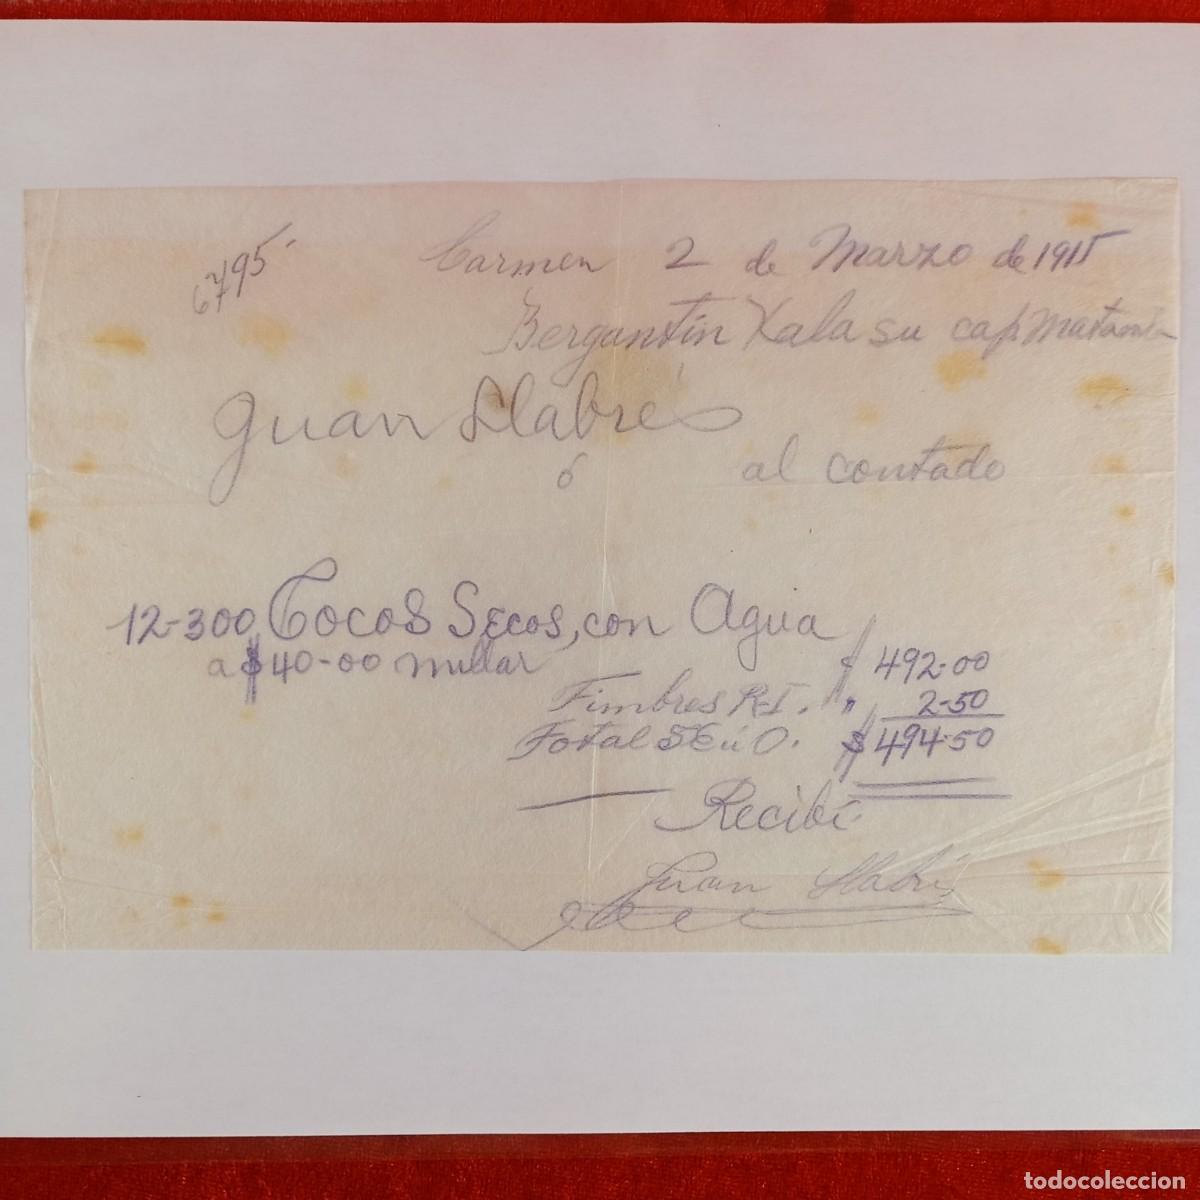 6795.
Carmen 2 de Marzo de 1915
Bergantín Kala su cap
Juan Llabrés
ó al contado
12-300 Cocos Secos, con Agua
a $40-00 millar $ 492-00
Timbres R-I. " 2-50
Total S E ú O. $ 494-50
Recibí
Juan Llabrés
todocoleccion